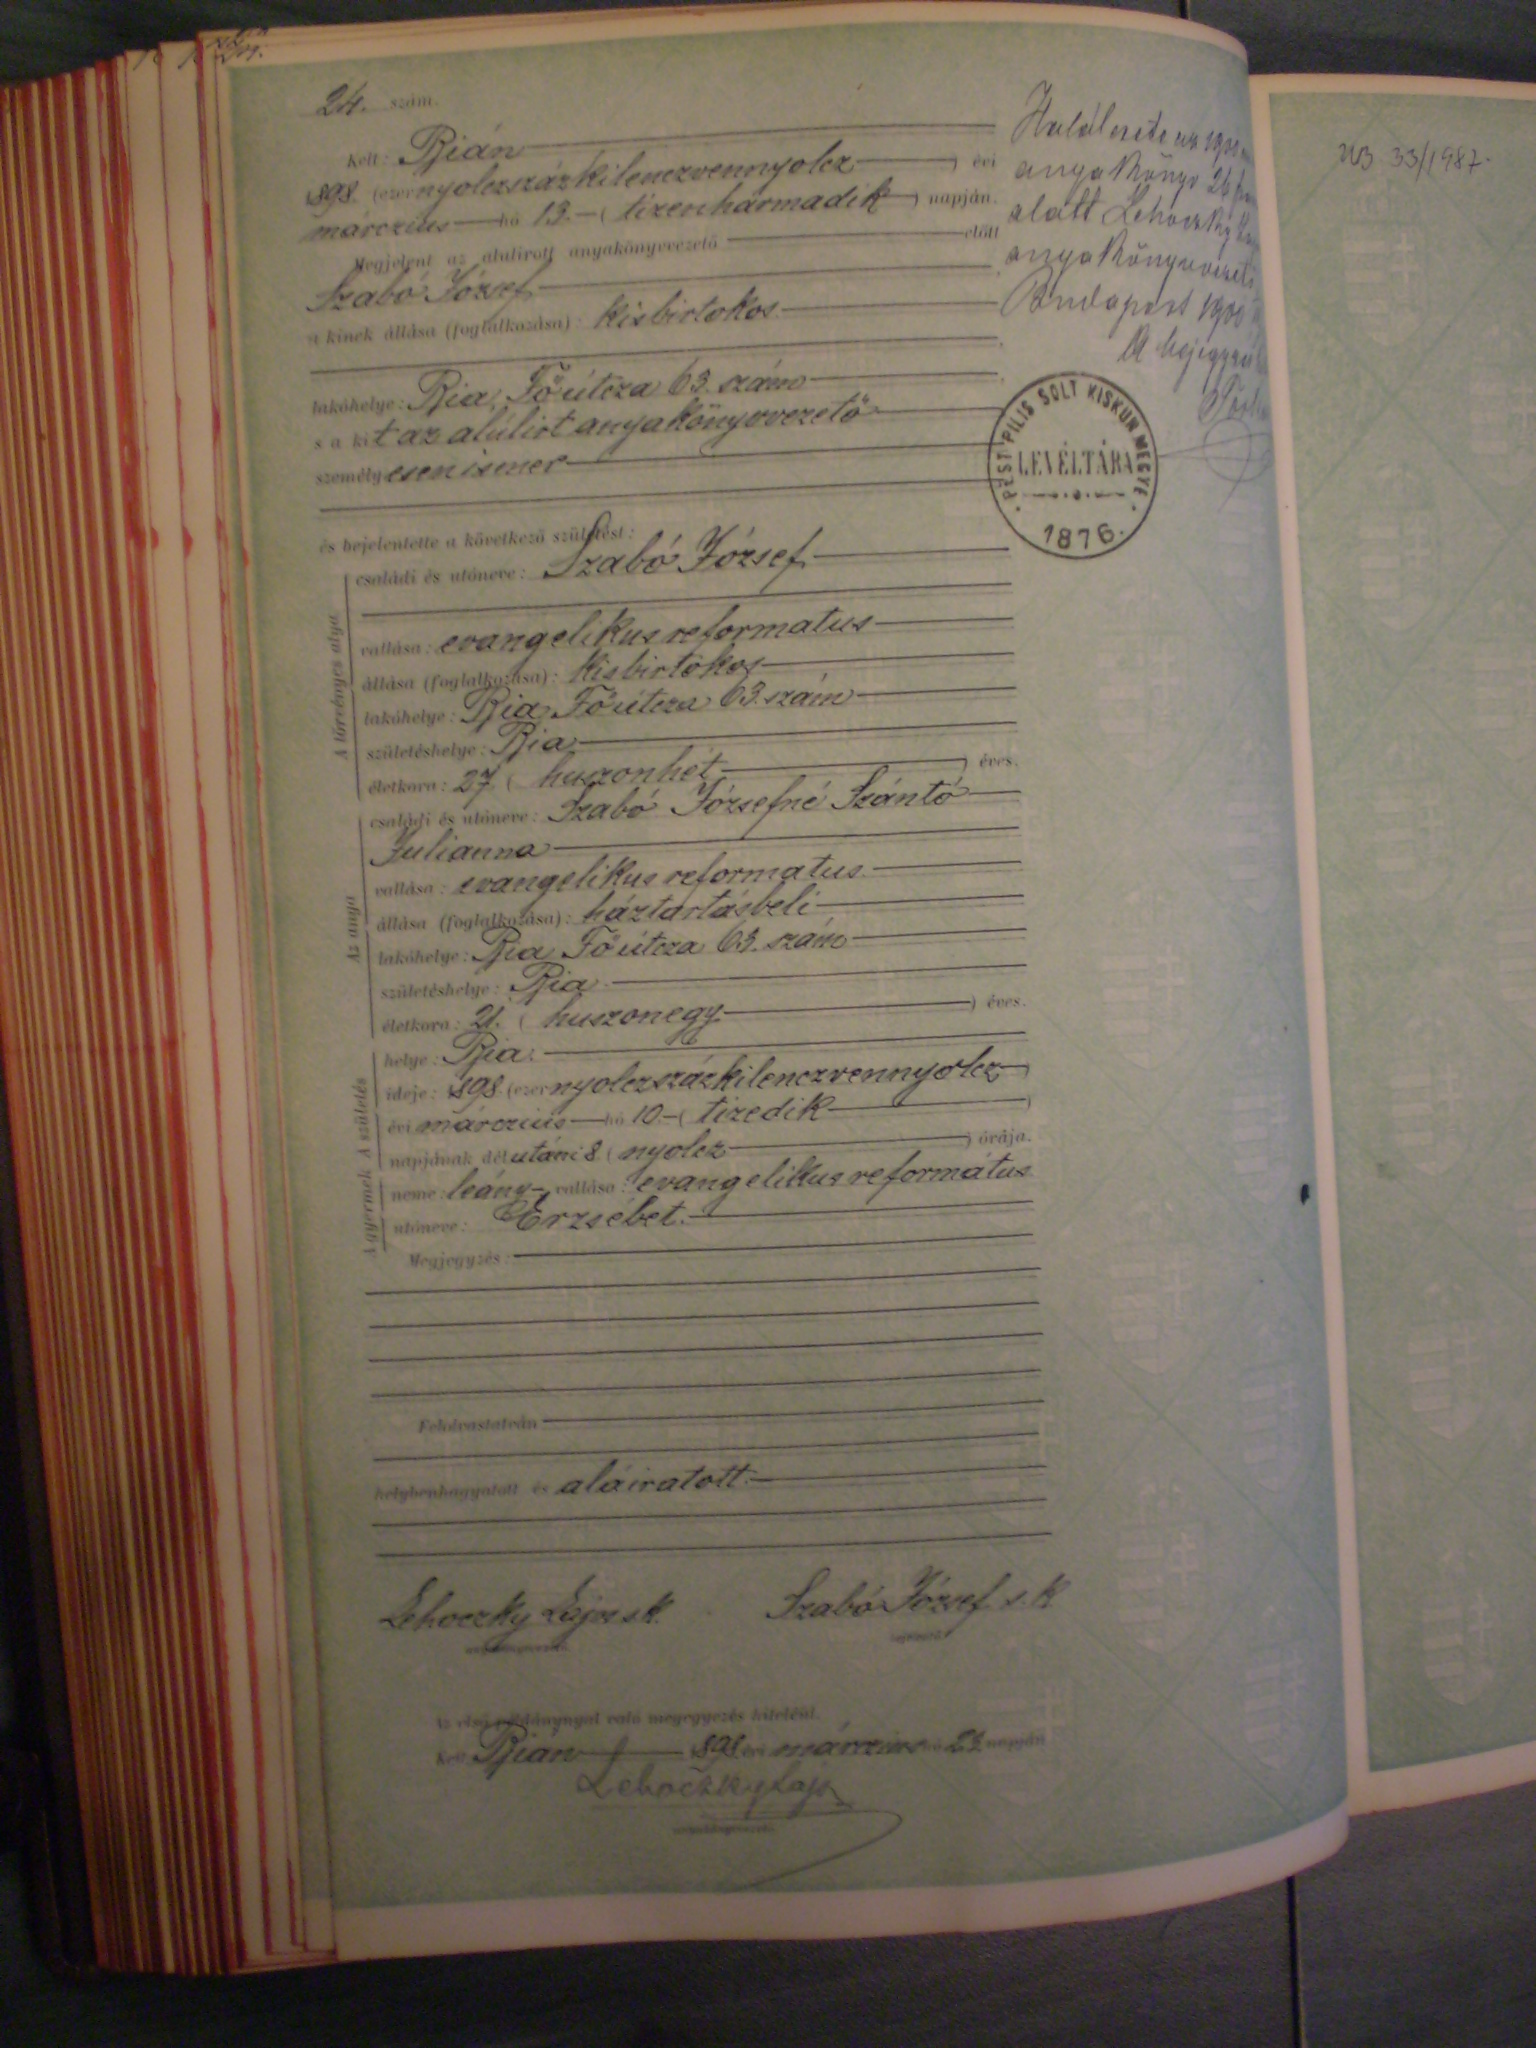 24. szám.
Kelt: Bián
1898. (ezernyolczszázkilenczvennyolcz) évi
márczius hó 13. (tizenharmadik) napján.
Megjelent az alulirott anyakönyvvezető előtt
Szabó József
a kinek állása (foglalkozása): kisbirtokos
lakóhelye: Bia, Főútcza 63. szám
s a kit az alúlirt anyakönyvvezető
személyesen ismer
és bejelentette a következő születést:
A törvényes atya
családi és utóneve: Szabó József
vallása: evangelikus reformatus
állása (foglalkozása): kisbirtokos
lakóhelye: Bia, Főútcza 63. szám
születéshelye: Bia
életkora: 27 (huszonhét) éves.
Az anya
családi és utóneve: Szabó Józsefné Szántó
Julianna
vallása: evangelikus reformatus
állása (foglalkozása): háztartásbeli
lakóhelye: Bia Főútcza 63. szám
születéshelye: Bia
életkora: 21. (huszonegy) éves.
A születés
helye: Bia.
ideje: 1898. (ezernyolczszázkilenczvennyolcz)
évi márczius hó 10. (tizedik)
napjának délutáni 8 (nyolcz) órája.
A gyermek
neme: leány, vallása: evangelikus református
utóneve: Erzsébet.
Megjegyzés:
Felolvastatván
helybenhagyatott és aláiratott.
Lehoczky Lajos s.k.
anyakönyvvezető.
Szabó József s. k.
bejelentő.
Az első példánynyal való megegyezés hiteléül.
Kelt Bián 1898. évi márczius hó 23 napján
Lehoczky Lajos
anyakönyvvezető.
Halálesete az 190
anyakönyv 26
alatt Lehoczky
anyakönyvvezető
Budapest 190
A bejegyzés
PEST PILIS SOLT KISKUN MEGYE
LEVÉLTÁRA
1876.
33/1987.